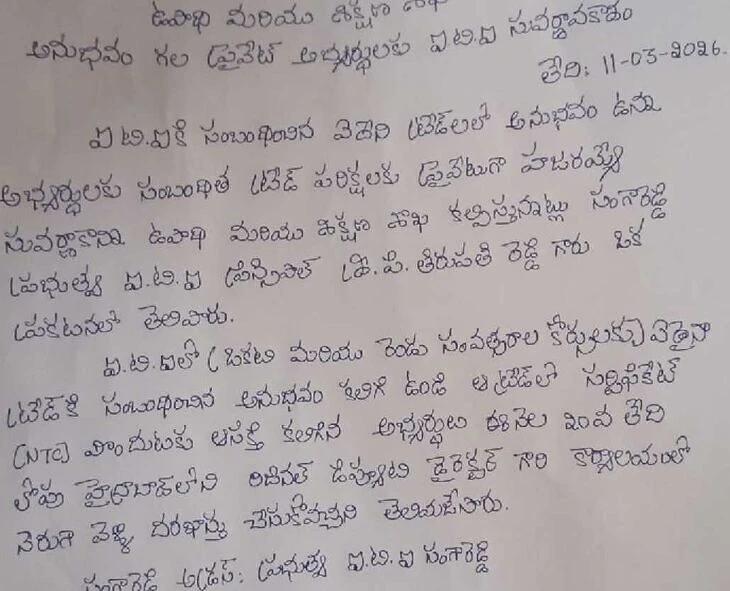 ఉపాధి మరియు శిక్షణ శాఖ
అనుభవం గల ప్రైవేట్ అభ్యర్థులకు ఐ.టి.ఐ సువర్ణావకాశం
తేది: 11-03-2026.
ఐ.టి.ఐకి సంబంధించిన వివిధ ట్రేడ్‌లలో అనుభవం ఉన్న
అభ్యర్థులకు సంబంధిత ట్రేడ్ పరీక్షలకు ప్రైవేటుగా హాజరయ్యే
సువర్ణాకాశాన్ని ఉపాధి మరియు శిక్షణ శాఖ కల్పిస్తున్నట్లు సంగారెడ్డి
ప్రభుత్వ ఐ.టి.ఐ ప్రిన్సిపాల్ శ్రీ. పి. తిరుపతి రెడ్డి గారు ఒక
ప్రకటనలో తెలిపారు.
ఐ.టి.ఐలో (ఒకటి మరియు రెండు సంవత్సరాల కోర్సులకు) ఏదైనా
ట్రేడ్‌కి సంబంధించిన అనుభవం కలిగి ఉండి ఆ ట్రేడ్‌లో సర్టిఫికేట్
(NTC) పొందుటకు ఆసక్తి కలిగిన అభ్యర్థులు ఈ నెల 20వ తేది
లోపు హైద్రాబాద్‌లోని రిజినల్ డిప్యూటి డైరెక్టర్ గారి కార్యాలయంలో
నేరుగా వెళ్ళి దరఖాస్తు చేసుకోవచ్చని తెలియజేసారు.
సంగారెడ్డి అడ్రస్: ప్రభుత్వ ఐ.టి.ఐ సంగారెడ్డి